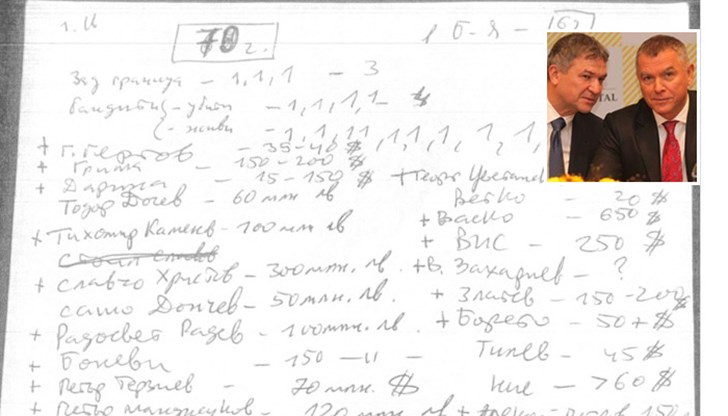 г. И
70 г.
1 б-я - 162
Зад граница - 1,1,1 - 3
Бандити - убити - 1,1,1,1 - 4
- живи - 1,1,11,1,1,1,1,1,
+ Г. Гергов - 35-40 $
+ Гриша - 150-200 $
+ Дариша - 15-150 $
Тодор Дочев - 60 млн лв
+ Тихомир Каменов - 100 млн лв
+ Славчо Христов - 300 млн. лв.
Сашо Дончев - 50 млн. лв.
+ Радосвет Радев - 100 млн. лв.
+ Боневи - 150 - 11 -
+ Петър Терзиев - 70 млн. $
+ Петър Манджуков - 120 млн. лв
+ Цветан
Ветко - 20 $
+ Васко - 650 $
+ ВИС - 250 $
+ В. Захариев - ?
+ Златев - 150-200 $
+ Борето - 50+ $
Тилев - 45 $
Ние - >60 $
TAL